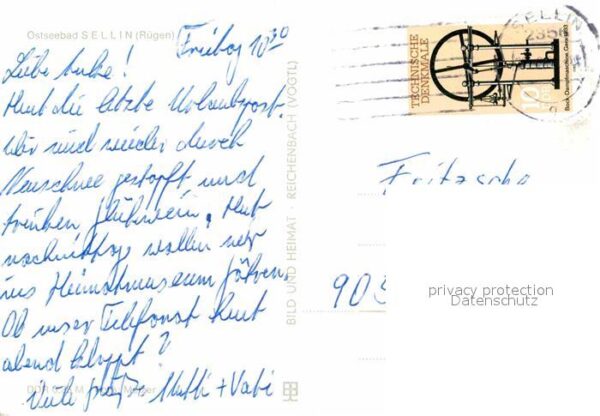 Ostseebad SELLIN (Rügen)
Freitag 10³⁰
Liebe Anke!
Heut die letzte Urlaubspost.
Wir sind wieder durch
Neuschnee gestapft und
trinken Glühwein. Heut
nachmittag wollen wir
ins Heimatmuseum fahren.
Ob unser Telefonat heut
abend klappt?
Viele Grüße Mutti + Vati
BILD UND HEIMAT · REICHENBACH (VOGTL)
TECHNISCHE
DENKMALE
10
SELLIN
2356
Fritzsche
903
privacy protection
Datenschutz